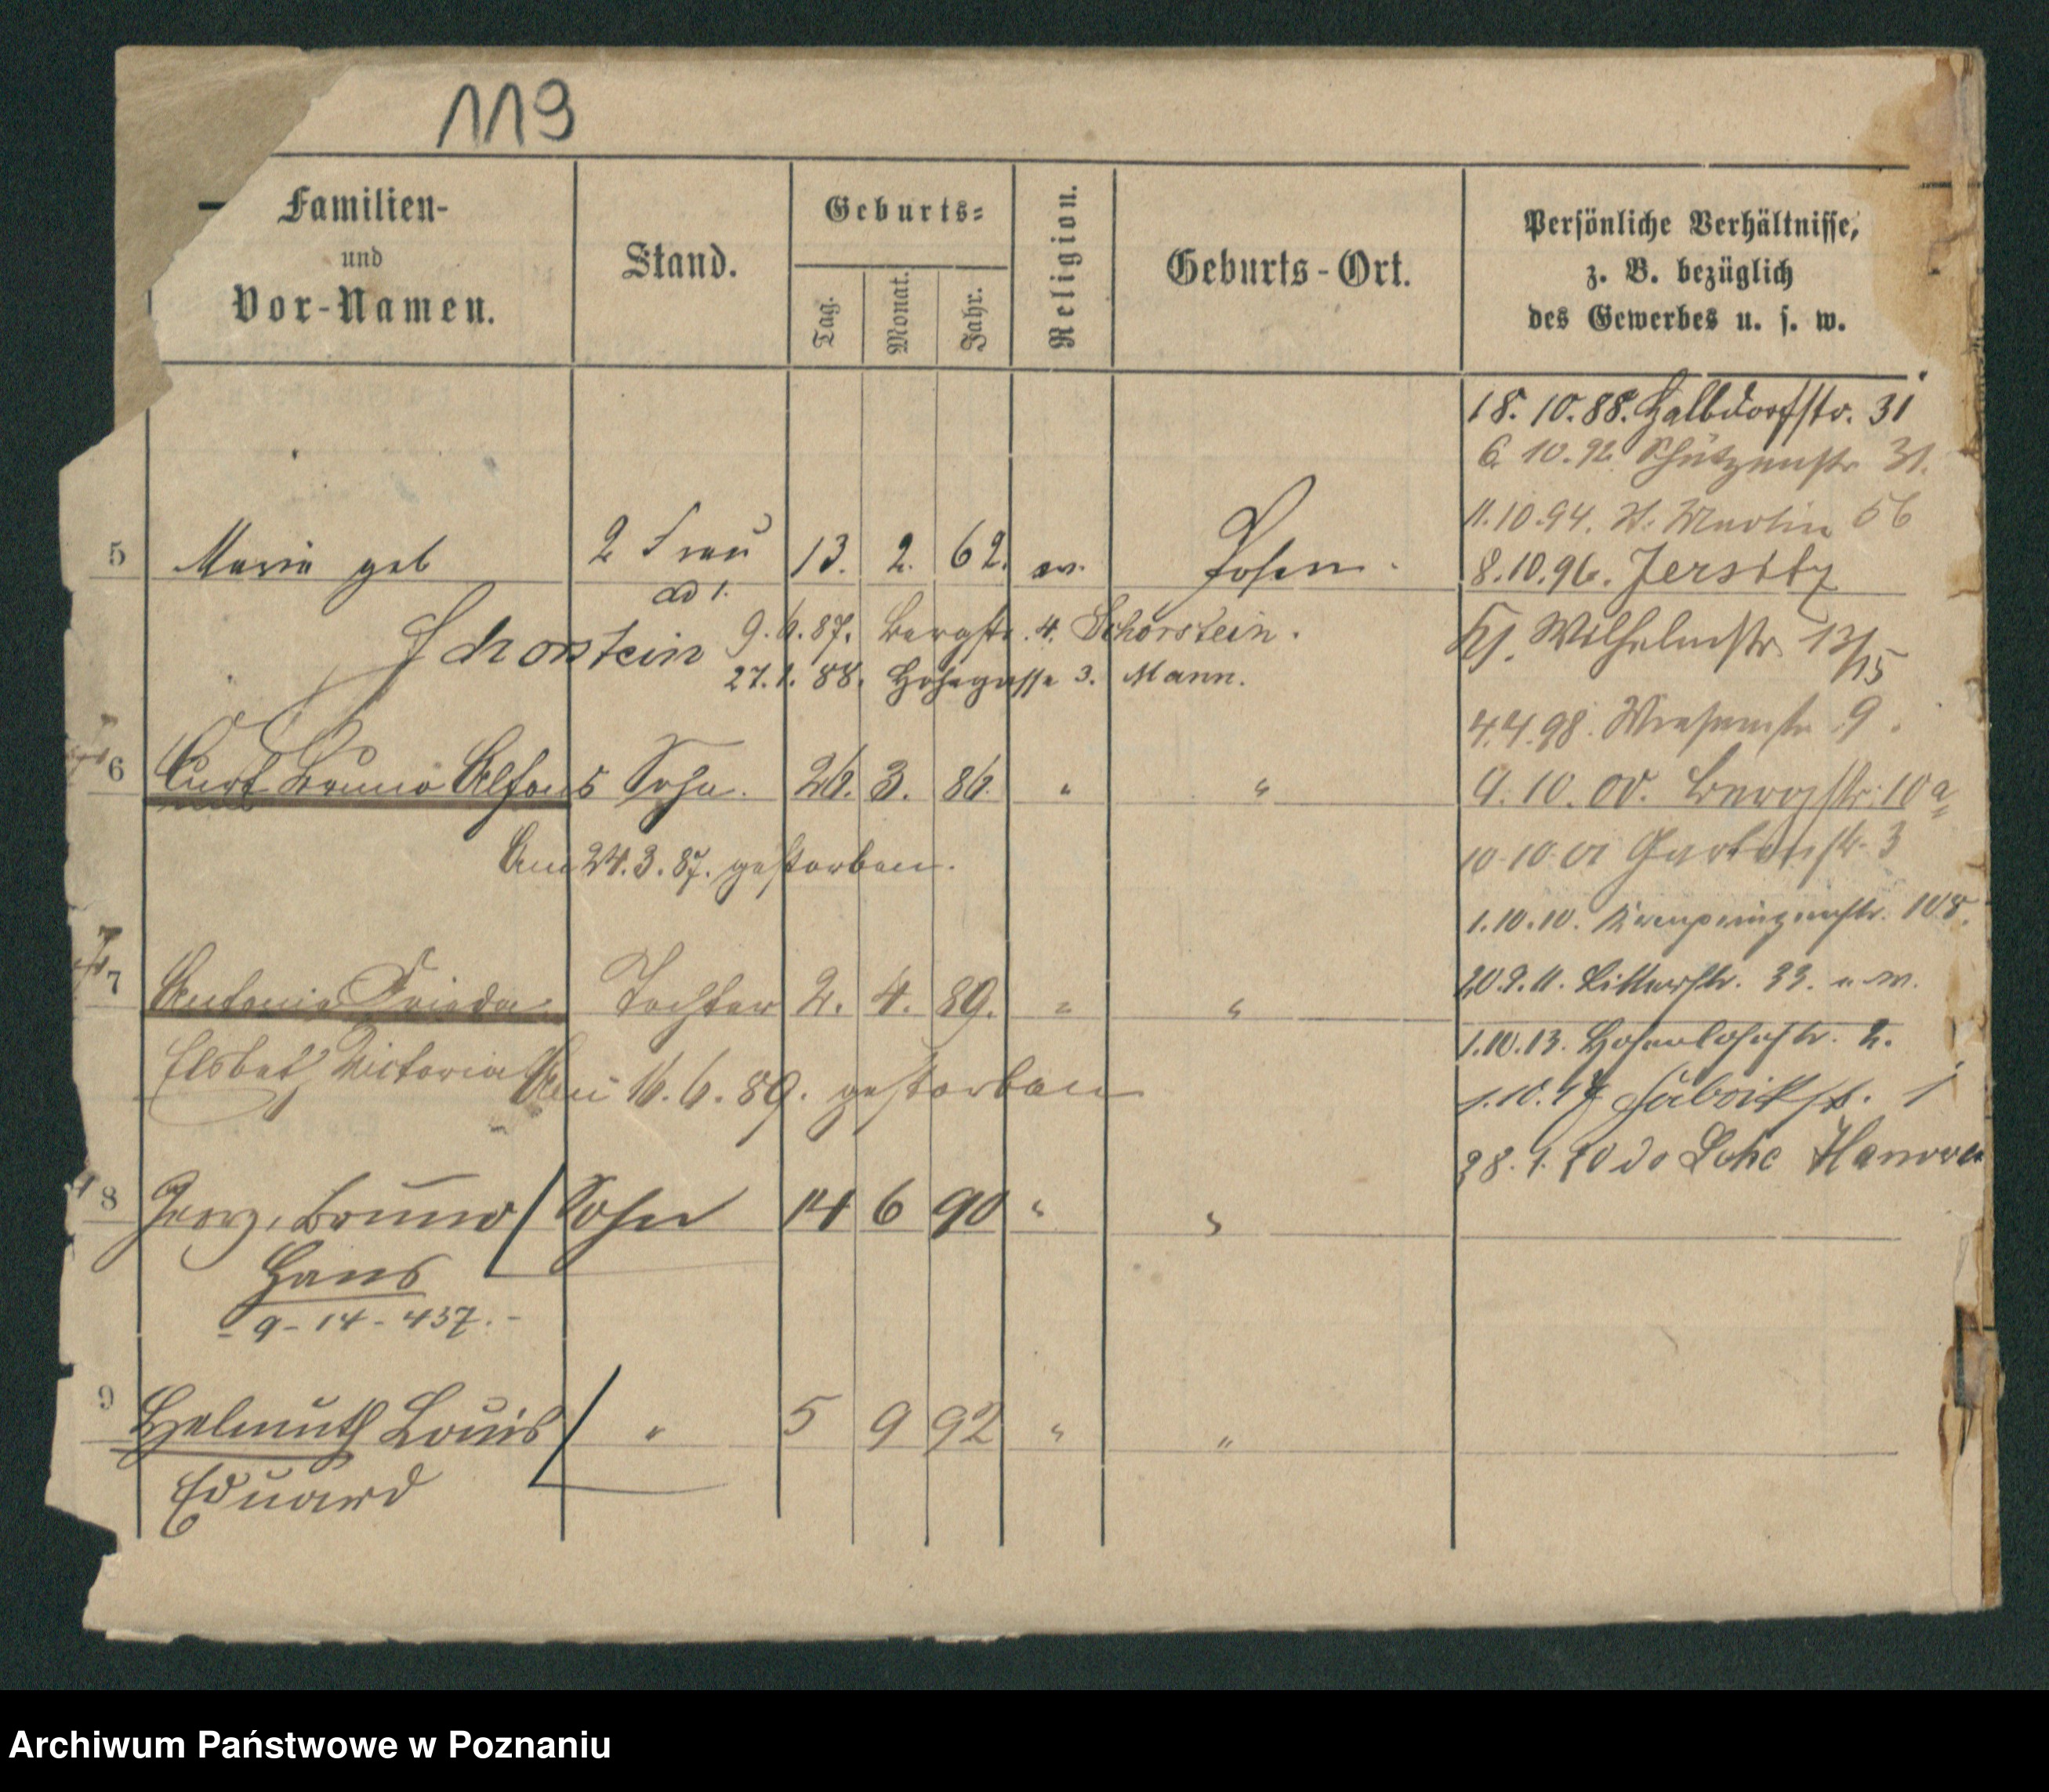 119
Familien-
und
Vor-Namen.
Stand.
Geburts-
Tag.
Monat.
Jahr.
Religion.
Geburts-Ort.
Persönliche Verhältnisse,
z. B. bezüglich
des Gewerbes u. s. w.
18.10.88. Halbdorfstr. 31
6. 10.92. Schützenstr 31.
11.10.94. St. Martin 56
5 Marie geb 2 Frau 13. 2. 62. ev. Posen.
8.10.96. Jersitz
ad 1.
Schorstein
9.6.87. Bergstr. 4. Schorstein.
Wilhelmstr. 13/15
27.1.88. Hohegasse 3. Mann.
4.4.98. Wiesenstr. 9.
6 Curt Bruno Alfons Sohn. 26. 3. 86. " "
9.10.00. Bergstr. 10a
Am 24.3.87. gestorben.
10.10.01 Gartenstr. 3
1.10.10. Kronprinzenstr. 108.
7 Antonie Frieda Tochter 2. 4. 89. " "
20.9.11. Ritterstr. 33.
1.10.13. Hohenlohestr. 2.
Elsbeth Victoria Am 16.6.89. gestorben
1.10.17 Fabrikstr. 1
28.1.20 do Hannover
8 Georg, Bruno Sohn 14 6 90 " "
Hans
- 9 - 14 - 437. -
9 Helmuth Louis " 5 9 92 " "
Eduard
Archiwum Państwowe w Poznaniu